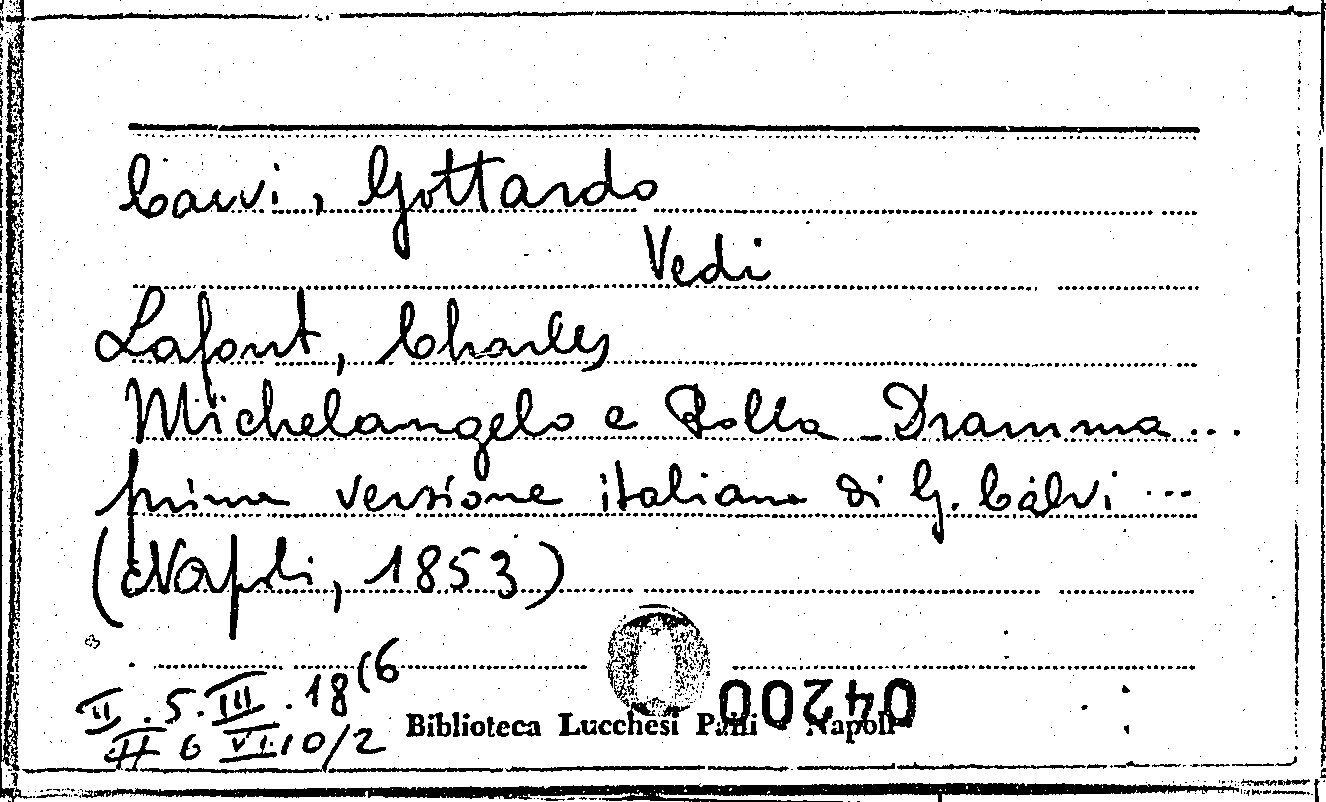 Calvi, Gottardo
Vedi
Lafont, Charles
Michelangelo e Rolla - Dramma...
prima versione italiana di G. Calvi ...
(Napoli, 1853)
II . 5. III . 18 (6
II 6 VI.10/2
Biblioteca Lucchesi Palli - Napoli
04200